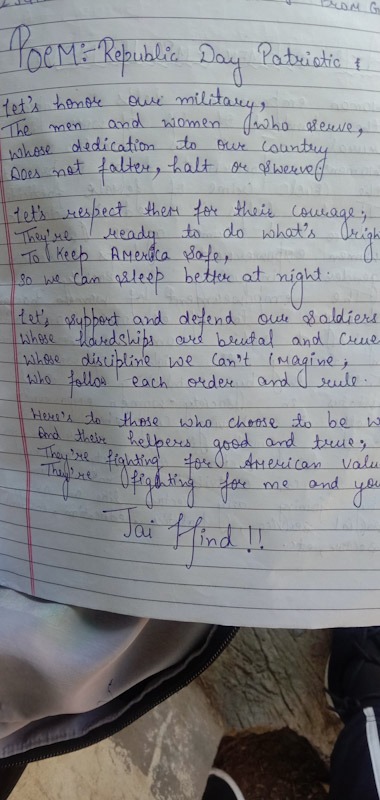 Poem:- Republic Day Patriotic &
Let's honor our military,
The men and women who serve,
whose dedication to our country
Does not falter, halt or swerve
Let's respect them for their courage;
They're ready to do what's righ
To Keep America safe,
So we can sleep better at night.
Let's support and defend our Saldiers
whose hardships are brutal and crue
whose discipline we can't imagine,
who follow each order and rule.
Here's to those who choose to be w
And their helpers good and true;
They're fighting for American valu
They're fighting for me and you
Jai Hind !!